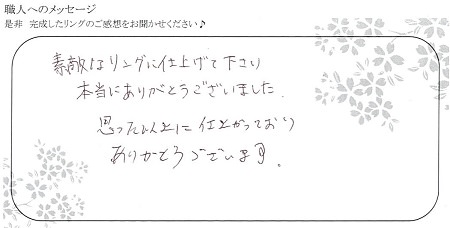 職人へのメッセージ
是非 完成したリングのご感想をお聞かせください♪
素敵なリングに仕上げて下さり
本当にありがとうございました.
思った以上に仕上がっており
ありがとうございます。